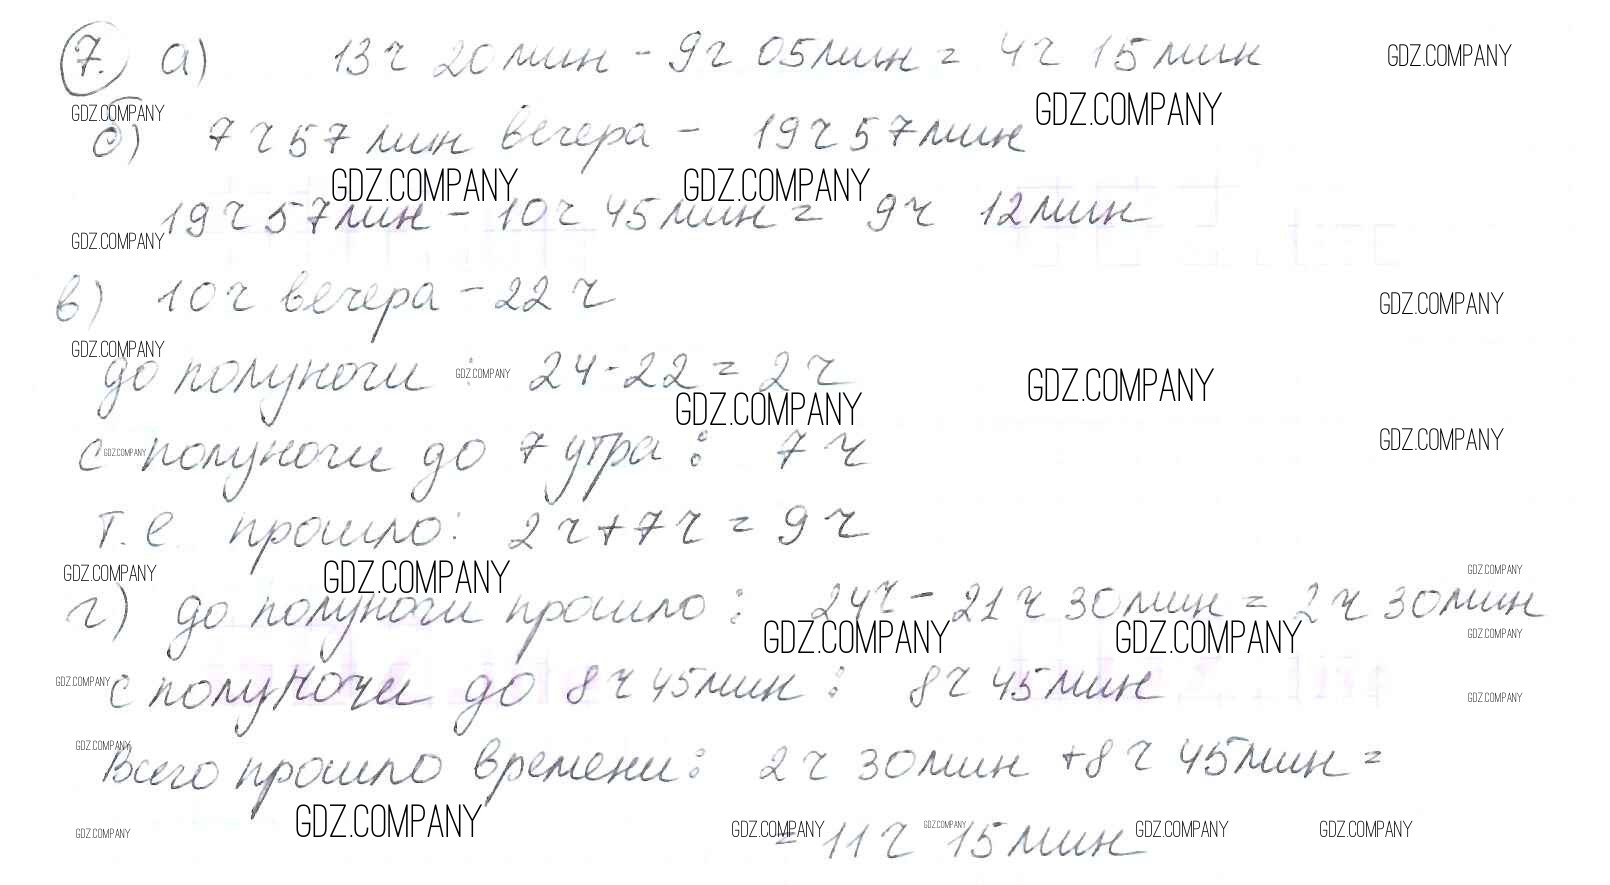 7. а) 13ч 20мин - 9ч 05мин = 4ч 15мин
GDZ.COMPANY
GDZ.COMPANY GDZ.COMPANY
б) 7ч57мин вечера - 19ч57мин
GDZ.COMPANY GDZ.COMPANY
19ч57мин - 10ч45мин = 9ч 12мин
GDZ.COMPANY
в) 10ч вечера - 22ч
GDZ.COMPANY
GDZ.COMPANY
до полуночи : 24-22=2ч
GDZ.COMPANY GDZ.COMPANY
GDZ.COMPANY
GDZ.COMPANY
с полуночи до 7 утра : 7ч
GDZ.COMPANY GDZ.COMPANY
т.е. прошло: 2ч+7ч=9ч
GDZ.COMPANY GDZ.COMPANY GDZ.COMPANY
г) до полуночи прошло : 24ч-21ч30мин=2ч30мин
GDZ.COMPANY GDZ.COMPANY GDZ.COMPANY
с полуночи до 8ч45мин : 8ч45мин
GDZ.COMPANY GDZ.COMPANY
GDZ.COMPANY
Всего прошло времени: 2ч 30мин +8ч 45мин=
GDZ.COMPANY GDZ.COMPANY GDZ.COMPANY GDZ.COMPANY GDZ.COMPANY GDZ.COMPANY
=11ч 15мин